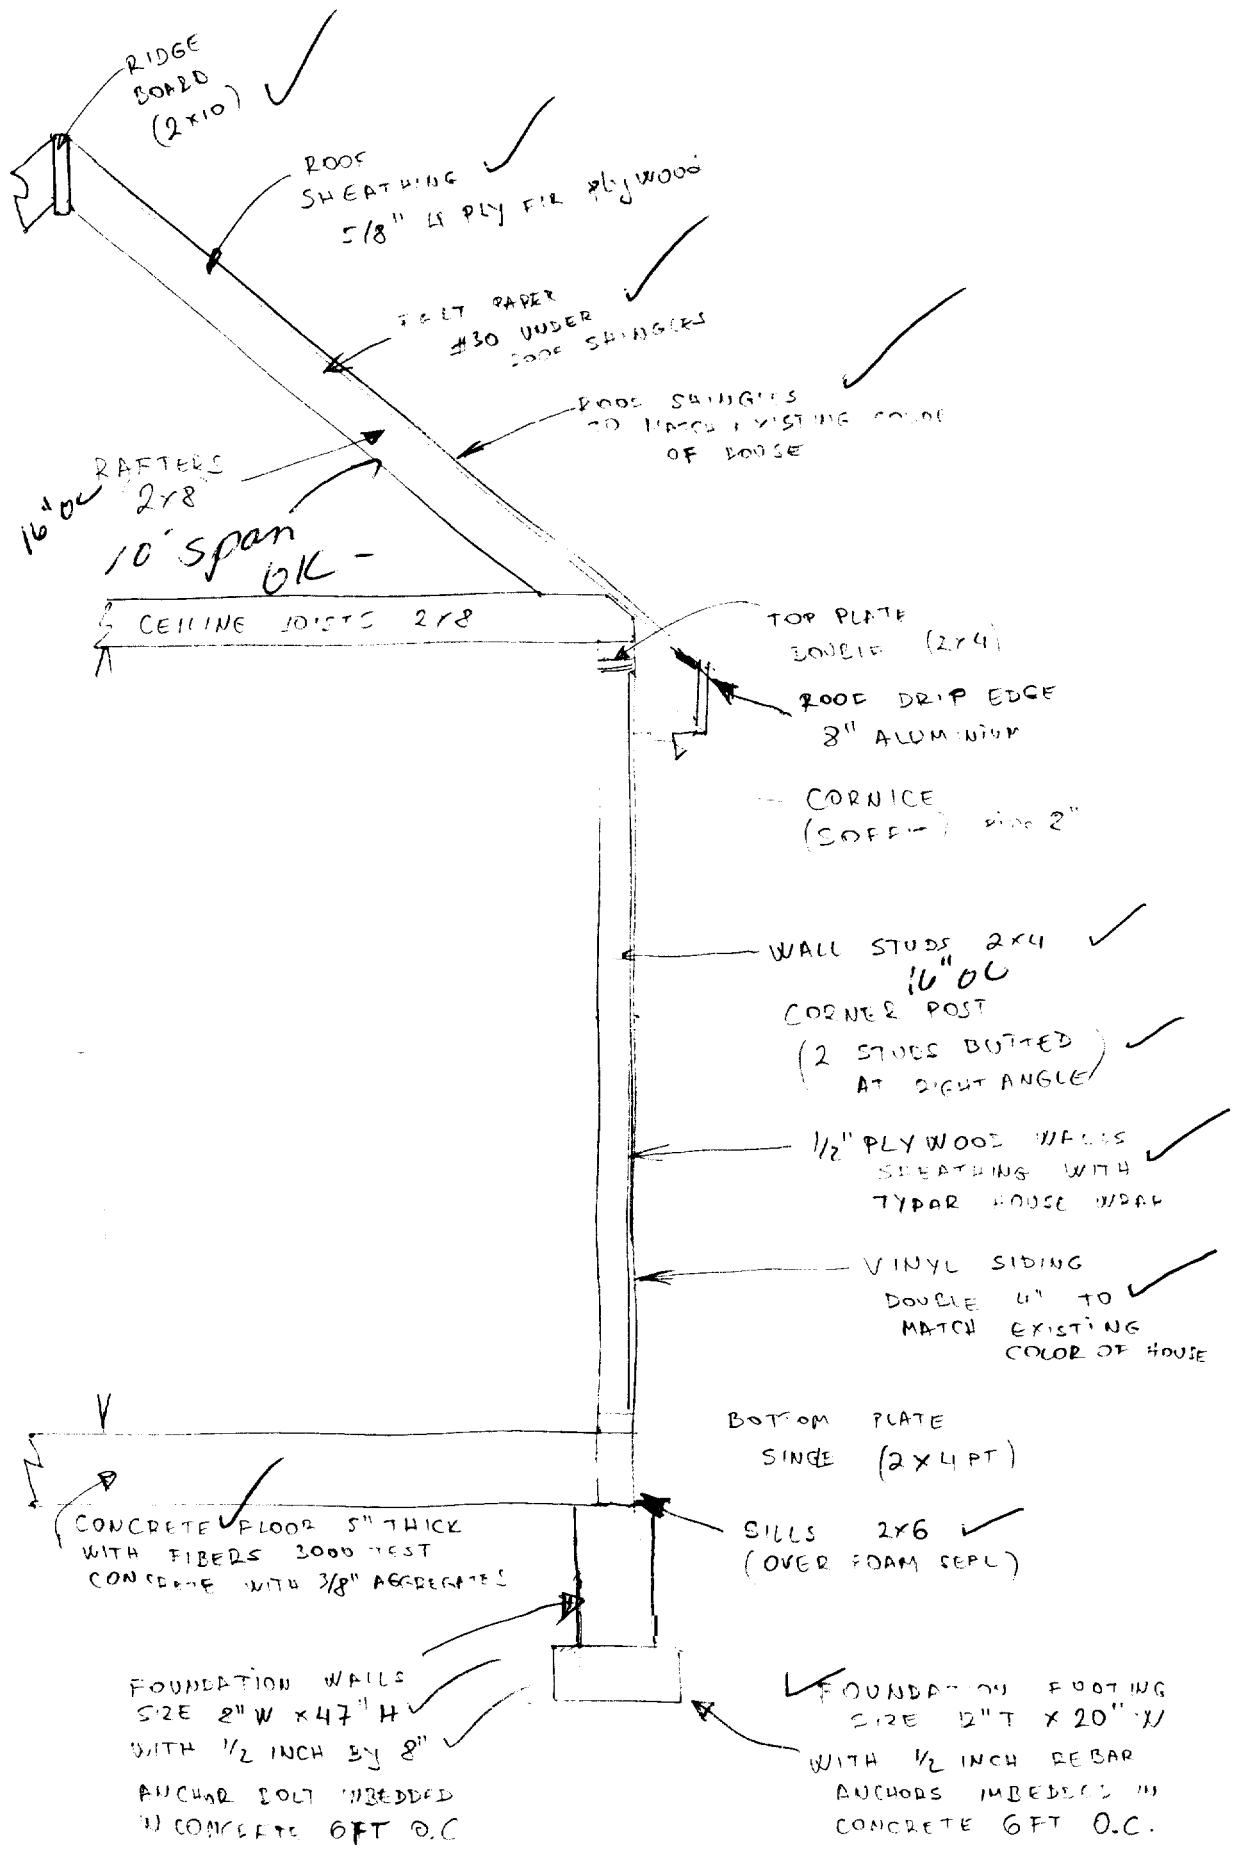 RIDGE
BOARD
(2x10)
ROOF
SHEATHING
5/8" 4 PLY FIR plywood
FELT PAPER
#30 UNDER
ROOF SHINGLES
ROOF SHINGLES
TO MATCH EXISTING COLOR
OF HOUSE
RAFTERS
2x8
16" OC
10' span
OK -
CEILING JOISTS 2x8
TOP PLATE
DOUBLE (2x4)
ROOF DRIP EDGE
8" ALUMINIUM
CORNICE
(SOFFIT) 2"
WALL STUDS 2x4
16" OC
CORNER POST
(2 STUDS BUTTED
AT RIGHT ANGLE)
1/2" PLYWOOD WALLS
SHEATHING WITH
TYPAR HOUSE WRAP
VINYL SIDING
DOUBLE 4" TO
MATCH EXISTING
COLOR OF HOUSE
BOTTOM PLATE
SINGLE (2x4 PT)
CONCRETE FLOOR 5" THICK
WITH FIBERS 3000 TEST
CONCRETE WITH 3/8" AGGREGATES
SILLS 2x6
(OVER FOAM SEAL)
FOUNDATION WALLS
SIZE 8" W x 47" H
WITH 1/2 INCH BY 8"
ANCHOR BOLT IMBEDDED
IN CONCRETE 6FT O.C
FOUNDATION FOOTING
SIZE 12" T x 20" W
WITH 1/2 INCH REBAR
ANCHORS IMBEDDED IN
CONCRETE 6FT O.C.